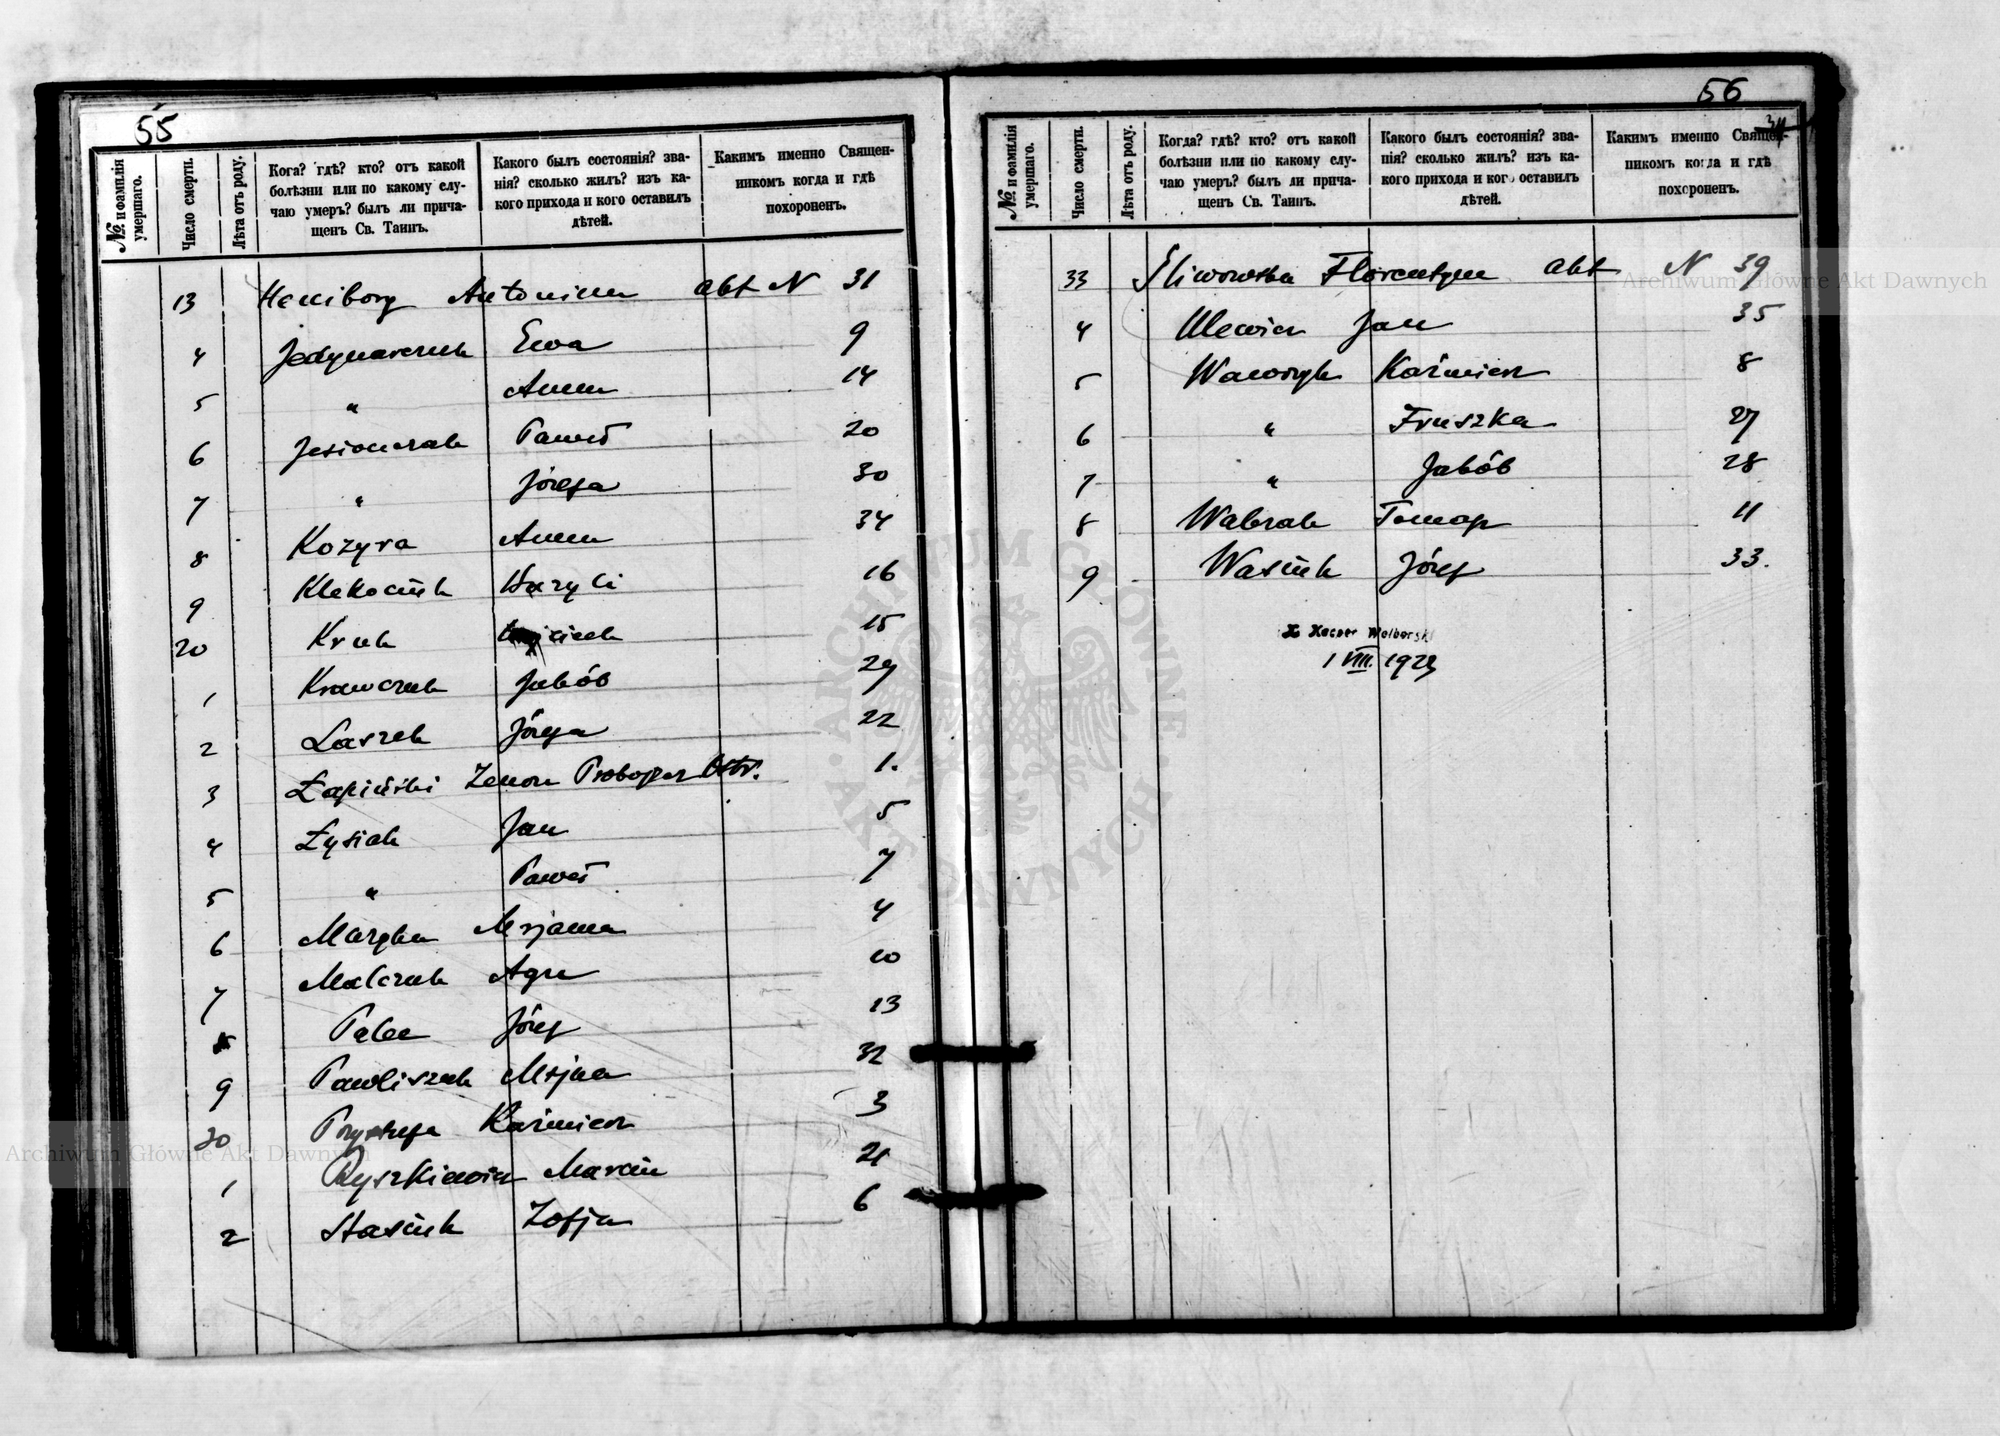 55
№ и фамилія умершаго.
Число смерти.
Лѣта отъ роду.
Кога? гдѣ? кто? отъ какой
болѣзни или по какому слу-
чаю умеръ? былъ ли прича-
щенъ Св. Таинъ.
Какого былъ состоянія? зва-
нія? сколько жилъ? изъ ка-
кого прихода и кого оставилъ
дѣтей.
Какимъ именно Священ-
никомъ когда и гдѣ
похороненъ.
13 Antonina akt N 31
4 Jedynarczuk Ewa 9
5 " Anna 14
6 Jesionczak Paweł 20
7 " Józefa 30
8 Kozyra Anna 34
9 Klekociuk Bazyli 16
20 Kruk 15
1 Krawczuk Jakób 29
2 Laszek Józefa 22
3 Łapiński Zenon Proboszcz Ostr. 1.
4 Łysiak Jan 5
5 " Paweł 7
6 Marjanna 4
7 Malczuk Agn 10
8 Józef 13
9 Pawliszuk Marjna 32
30 Przystupa Kaźmierz 3
1 Ryszkiewicz Marcin 21
2 Stasiuk Zofja 6
56
34
№ и фамилія умершаго.
Число смерти.
Лѣта отъ роду.
Когда? гдѣ? кто? отъ какой
болѣзни или по какому слу-
чаю умеръ? былъ ли прича-
щенъ Св. Таинъ.
Какого былъ состоянія? зва-
нія? сколько жилъ? изъ ка-
кого прихода и кого оставилъ
дѣтей.
Какимъ именно Священ-
никомъ когда и гдѣ
похороненъ.
33 Śliwowska Florentyna akt N 39
4 Ulewicz Jan 35
5 Wawryk Kaźmierz 8
6 " Fruszka 27
7 " Jakób 28
8 Tomasz 11
9 Wasiuk Józef 33.
X Kacper Wolborski
1 VIII. 1923
Archiwum Główne Akt Dawnych
Archiwum Główne Akt Dawnych
ARCHIWUM GŁÓWNE AKT DAWNYCH